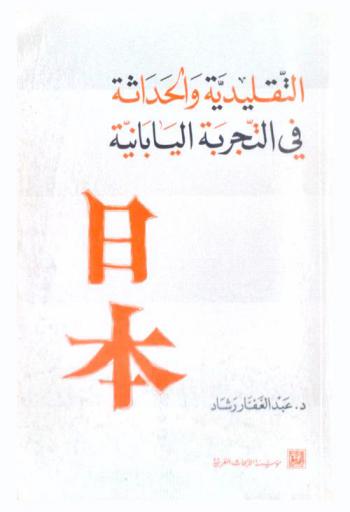 التقليديّة وَالحَدَاثة
في التّجربَة اليَابَانيّة
日
本
د. عَبْد الغَفّار رَشَاد
مؤسسة الأبحاث العربية